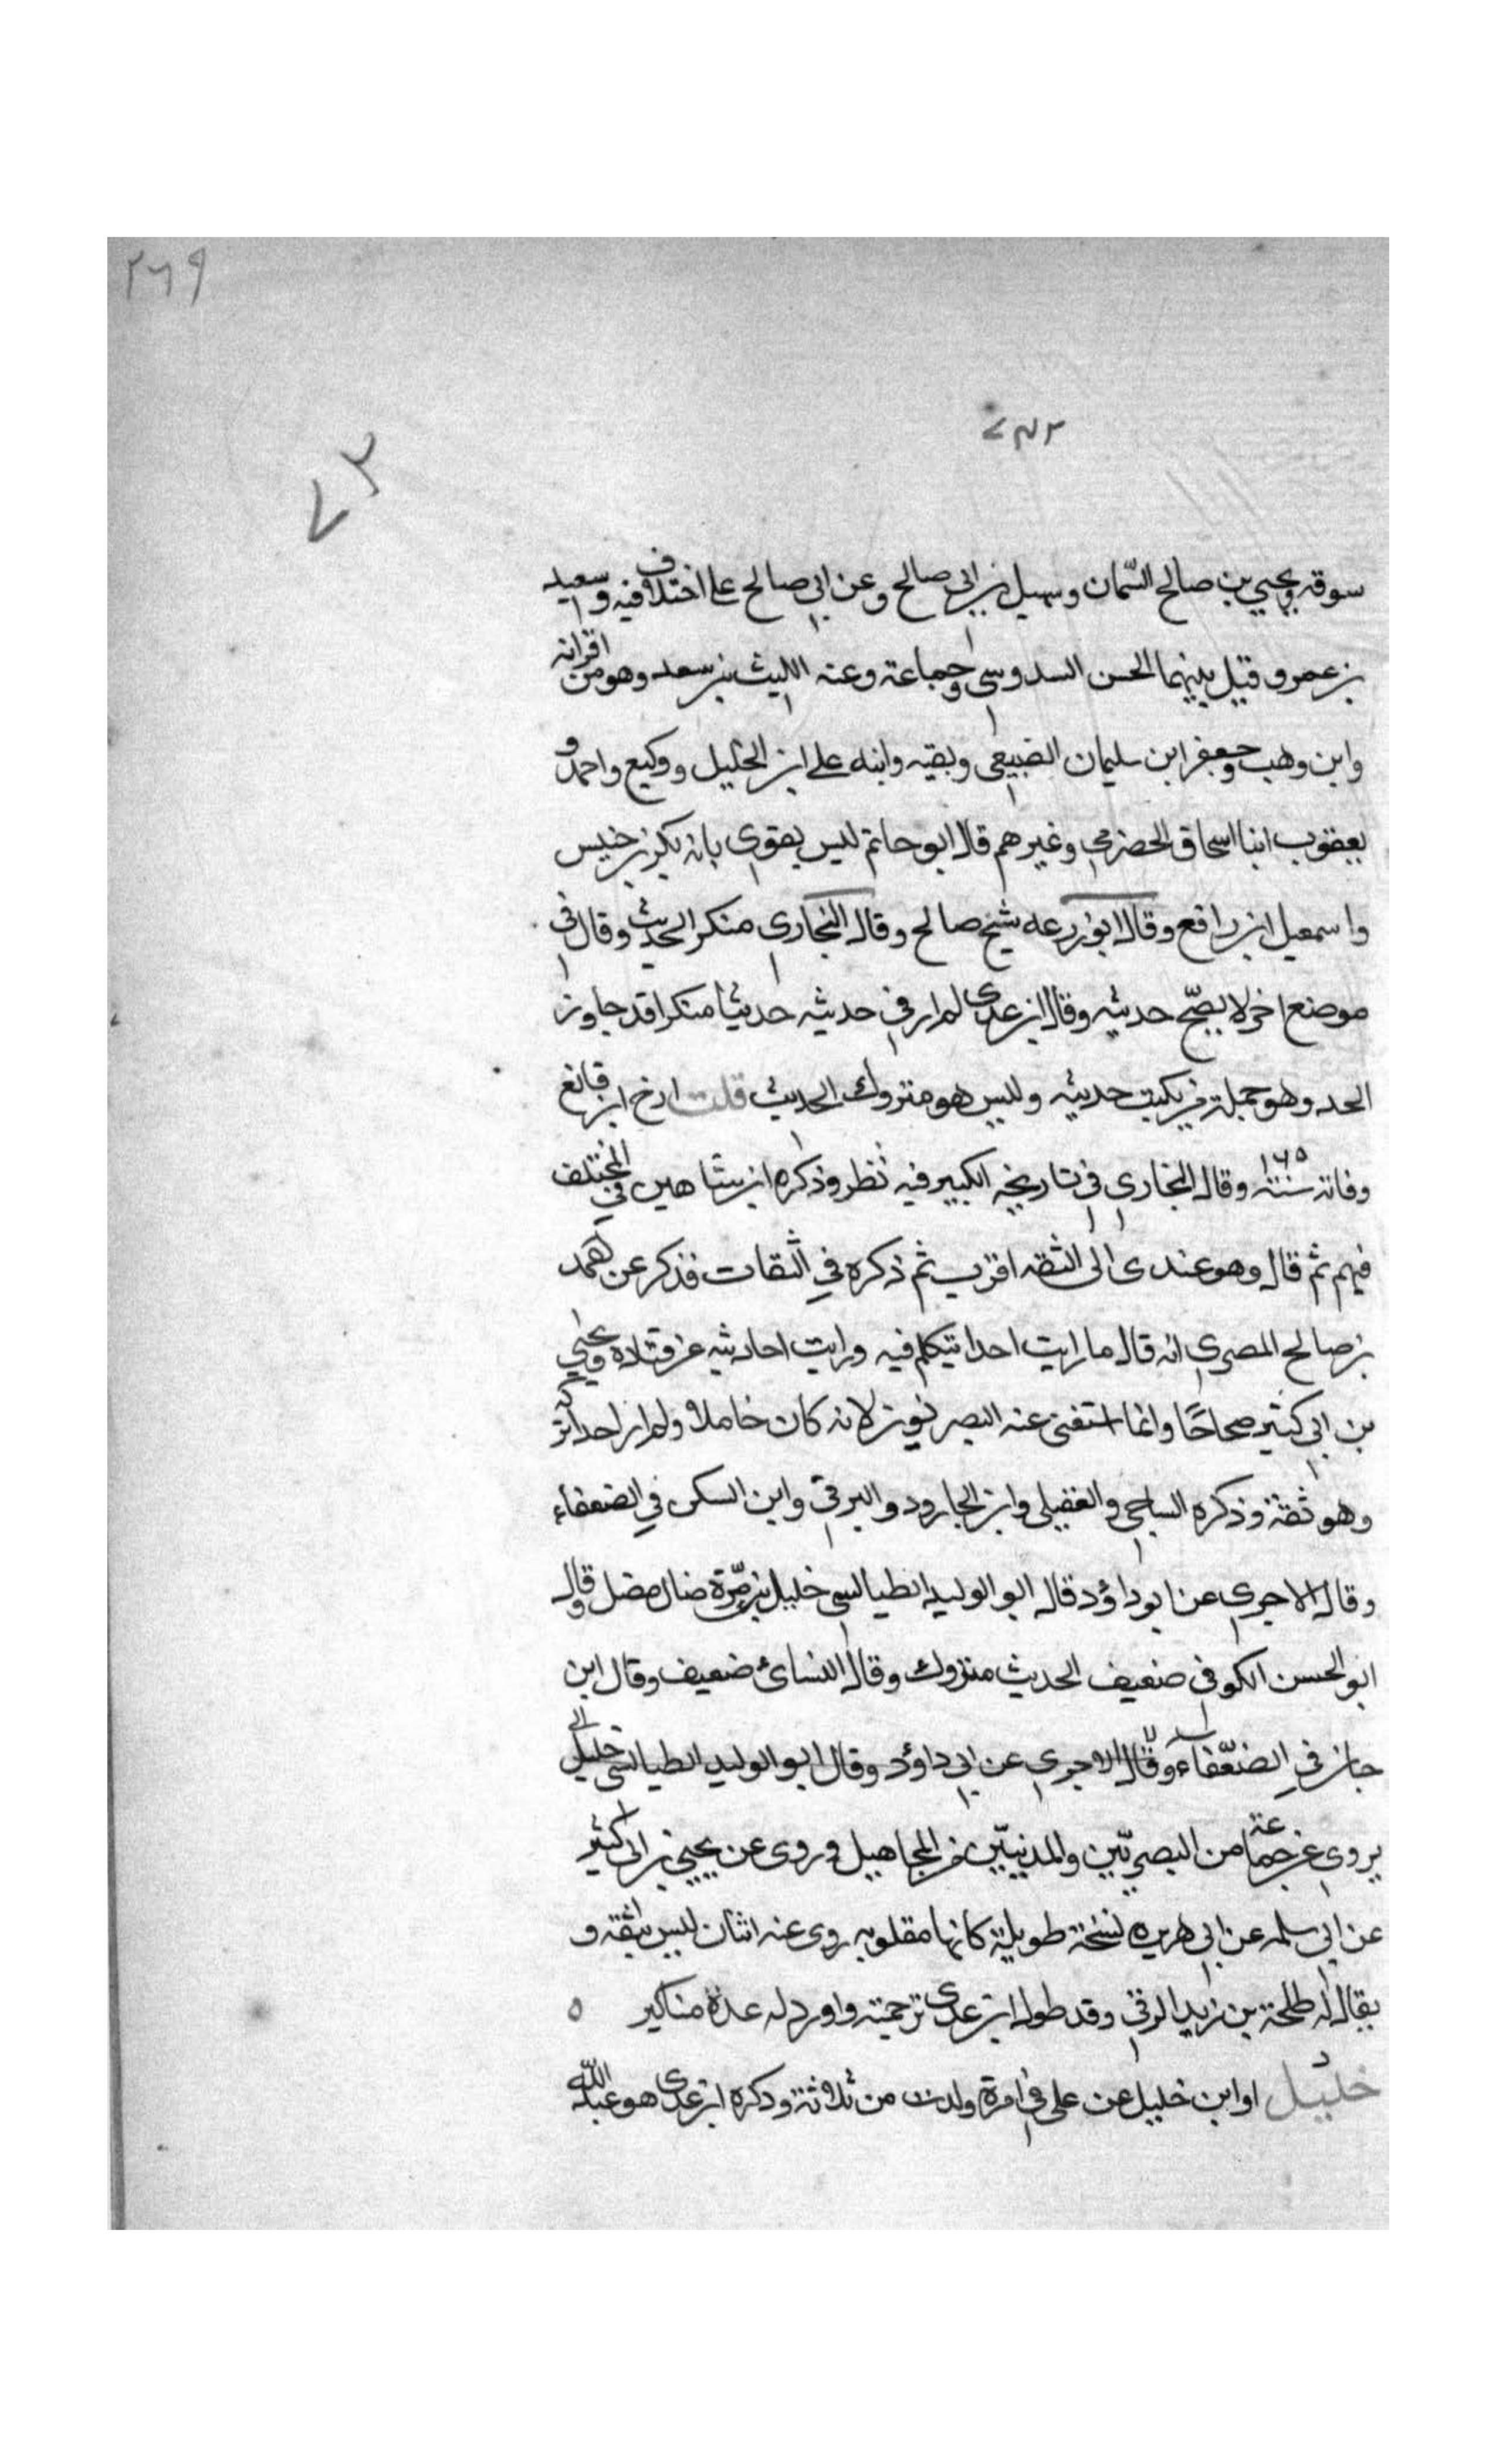 ٢٦٩
٢٧٣
سوقه ويحيي بن صالح السمّان وسهيل بن ابي صالح وعن ابي صالح على اختلاف فيه وسعيد
بن عمرو وقيل بينهما الحسن السدوسي وجماعة وعنه الليث بن سعد وهو من اقرانه
وابن وهب وجعفر ابن سليمان الضبيعي وبقيه وابنه على ابن الخليل ووكيع واحمد و
يعقوب ابنا اسحاق الحضرمي وغيرهم قال ابو حاتم ليس بقوي بابه بكر بن خنيس
واسمعيل ابن رافع وقال ابو زرعه شيخ صالح وقال البخاري منكر الحديث وقال في
موضع اخر لا يصحّ حديثه وقال ابن عدي لم ار في حديثه حديثا منكرا قد جاوز
الحد وهو جملة من يكتب حديثه وليس هو متروك الحديث قلت ارخ ابن قانع
وفاته سنة ١٦٥ وقال البخاري في تاريخه الكبير فيه نظر وذكره ابن شاهين في المختلف
فيهم ثم قال وهو عندي الى الثقه اقرب ثم ذكره في الثقات فذكر عن احمد
بن صالح المصري انه قال ما رايت احدا يتكلم فيه ورايت احاديثه عن قتادة ويحيي
بن ابي كثير صحاحًا وانما استغنى عنه البصريون لانه كان خاملا ولم ار احدا تركه
وهو ثقة وذكره الساجي والعقيلي وابن الجارود والبرقي وابن السكن في الضعفاء
وقال الاجري عن ابو داؤد قال ابو الوليد الطيالسي خليل بن مرّة ضال مضل وقال
ابو الحسن الكوفي ضعيف الحديث متروك وقال النسائ ضعيف وقال ابن
حبان في الضعّفاء وقال الاجري عن ابي داؤد وقال ابو الوليد الطيالسي خليل
يروي عن جماعة من البصريّين والمدنييّن من المجاهيل وروي عن يحيي بن ابي كثير
عن ابي سلمه عن ابي هريره نسخة طويلة كانها مقلوبه روي عنه اثنان ليس بثقه و
يقال له طلحة بن زيد الرقي وقد طول ابن عدي ترجمته واورد له عدة مناكير ٥
خليل او ابن خليل عن علي في امرة ولدت من ثلاثة وذكره ابن عدي هو عبد الله